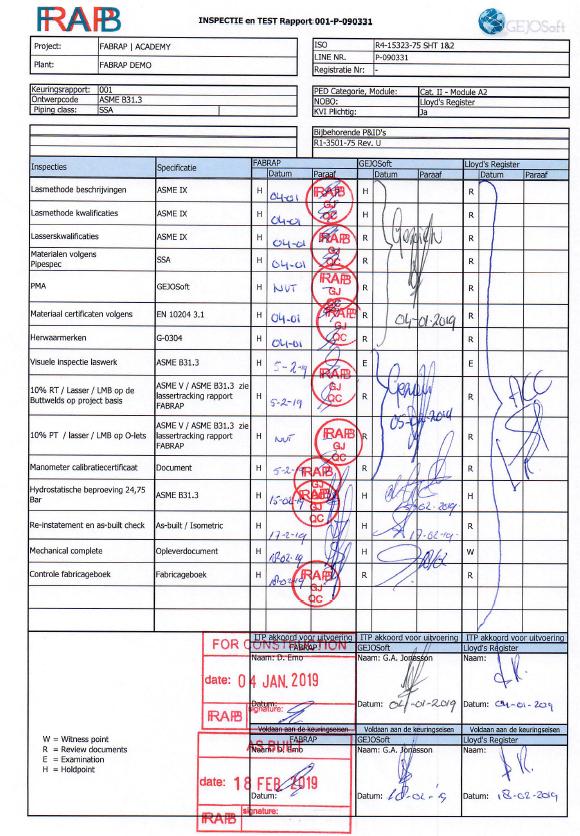 FRAPB
INSPECTIE en TEST Rapport 001-P-090331
GEJOSoft
Project: FABRAP | ACADEMY
Plant: FABRAP DEMO
ISO R4-15323-75 SHT 1&2
LINE NR. P-090331
Registratie Nr: -
Keuringsrapport: 001
Ontwerpcode ASME B31.3
Piping class: SSA
PED Categorie, Module: Cat. II - Module A2
NOBO: Lloyd's Register
KVI Plichtig: Ja
Bijbehorende P&ID's
R1-3501-75 Rev. U
FABRAP GEJOSoft Lloyd's Register
Inspecties Specificatie Datum Paraaf Datum Paraaf Datum Paraaf
Lasmethode beschrijvingen ASME IX H 04-01 H R
Lasmethode kwalificaties ASME IX H 04-01 R R
Lasserskwalificaties ASME IX H 04-01 R R
Materialen volgens
Pipespec SSA H 04-01 R R
PMA GEJOSoft H NVT R R
Materiaal certificaten volgens EN 10204 3.1 H 04-01 R 04-01-2019 R
Herwaarmerken G-0304 H 04-01 R R
Visuele inspectie laswerk ASME B31.3 H 5-2-19 E E
10% RT / Lasser / LMB op de
Buttwelds op project basis
ASME V / ASME B31.3 zie
lassertracking rapport
FABRAP
H 5-2-19 R R ACC
10% PT / lasser / LMB op O-lets
ASME V / ASME B31.3 zie
lassertracking rapport
FABRAP
H NVT R R
Manometer calibratiecertificaat Document H 5-2-19 R R
Hydrostatische beproeving 24,75
Bar ASME B31.3 H 15-02-19 H H
Re-instatement en as-built check As-built / Isometric H 17-2-19 H 17-02-19 R
Mechanical complete Opleverdocument H 18-02-19 H W
Controle fabricageboek Fabricageboek H 18-02-19 R R
FRAPB
GJ
QC
ITP akkoord voor uitvoering ITP akkoord voor uitvoering ITP akkoord voor uitvoering
FABRAP GEJOSoft Lloyd's Register
FOR CONSTRUCTION
Naam: D. Emo Naam: G.A. Jonasson Naam:
date: 04 JAN. 2019
Datum: Datum: 04-01-2019 Datum: 04-01-2019
FRAPB signature:
Voldaan aan de keuringseisen Voldaan aan de keuringseisen Voldaan aan de keuringseisen
FABRAP GEJOSoft Lloyd's Register
AS-BUILT
Naam: D. Emo Naam: G.A. Jonasson Naam:
date: 18 FEB. 2019
Datum: Datum: Datum: 18-02-2019
FRAPB signature:
W = Witness point
R = Review documents
E = Examination
H = Holdpoint